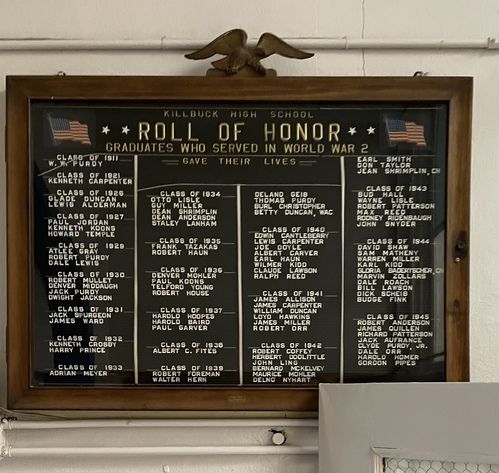 KILLBUCK HIGH SCHOOL
ROLL OF HONOR
GRADUATES WHO SERVED IN WORLD WAR 2
GAVE THEIR LIVES
CLASS OF 1911
W. W. PURDY
CLASS OF 1921
KENNETH CARPENTER
CLASS OF 1926
GLADE DUNCAN
LEWIS ALDERMAN
CLASS OF 1927
PAUL JORDAN
KENNETH KOONS
HOWARD TEMPLE
CLASS OF 1929
ATLEE GRAY
ROBERT PURDY
DALE LEWIS
CLASS OF 1930
ROBERT MULLET
DENVER MIDDAUGH
JACK PURDY
DWIGHT JACKSON
CLASS OF 1931
JACK SPURGEON
JAMES WARD
CLASS OF 1932
KENNETH CROSBY
HARRY PRINCE
CLASS OF 1933
ADRIAN MEYER
CLASS OF 1934
OTTO LISLE
GUY MILLER
DEAN SHRIMPLIN
DEAN ANDERSON
STACEY LANHAM
CLASS OF 1935
FRANK TAZAKAS
ROBERT HAUN
CLASS OF 1936
DENVER MOHLER
PAUL KOONS
TELFORD YOUNG
ROBERT HOUSE
CLASS OF 1937
HAROLD HOPES
HAROLD HINES
PAUL GARVER
CLASS OF 1938
ALBERT C. FITES
CLASS OF 1939
ROBERT FOREMAN
WALTER HERN
DELANO GEIB
THOMAS PURDY
BURL CHRISTOPHER
BETTY DUNCAN, WAC
CLASS OF 1940
EDWIN CANTLEBERRY
LEWIS CARPENTER
JOE DOYLE
ALBERT CARVER
EARL HAUN
WILMER KIDD
CLAUDE LAWSON
RALPH REED
CLASS OF 1941
JAMES ALLISON
JAMES CARPENTER
WILLIAM DUNCAN
LOYD HAWKINS
JAMES MILLER
ROBERT ORR
CLASS OF 1942
ROBERT COFFEY
HERBERT DOOLITTLE
JOHN LING
BERNARD MCKELVEY
MAURICE MOHLER
DELNO NYHART
EARL SMITH
DON TAYLOR
JEAN SHRIMPLIN, CN
CLASS OF 1943
BUD HALL
WAYNE LISLE
ROBERT PATTERSON
MAX REED
RODNEY RIDENBAUGH
JOHN SNYDER
CLASS OF 1944
DAVID SHAW
SAM MATHENY
WARREN MILLER
KARL KIDD
GLORIA BADERTSCHER, CN
MARVIN ZOLLARS
DALE ROACH
BILL LAWSON
DICK SCHEIB
BUDGE FINK
CLASS OF 1945
ROBERT ANDERSON
JAMES GUILLEN
RICHARD PATTERSON
JACK AUFRANCE
CLYDE PURDY, JR.
DALE ORR
HAROLD HOMER
GORDON PIPES